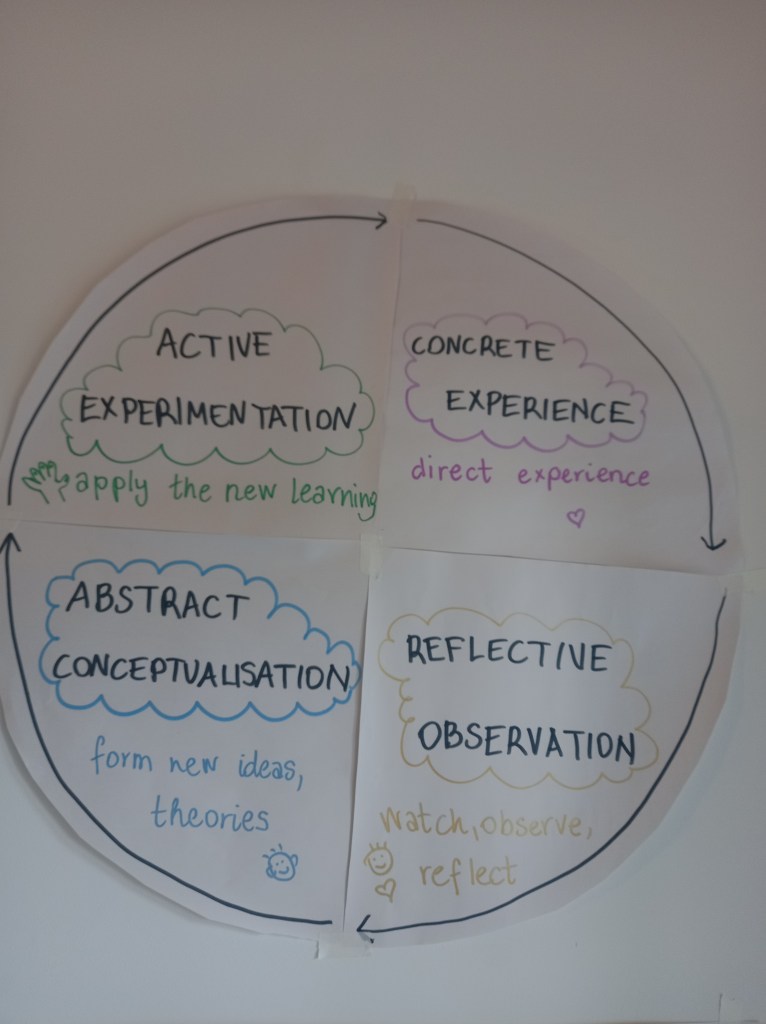 ACTIVE
EXPERIMENTATION
apply the new learning
CONCRETE
EXPERIENCE
direct experience
ABSTRACT
CONCEPTUALISATION
form new ideas,
theories
REFLECTIVE
OBSERVATION
watch, observe,
reflect